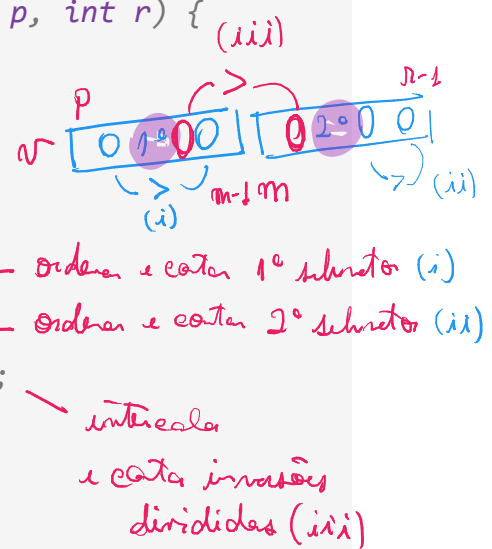 p, int r) {
(iii)
p > r-1
v 1º 2º
> m-1 m > (ii)
(i)
- ordenar e contar 1º subvetor (i)
- ordenar e contar 2º subvetor (ii)
;
intercala
e cota invasões
divididas (iii)